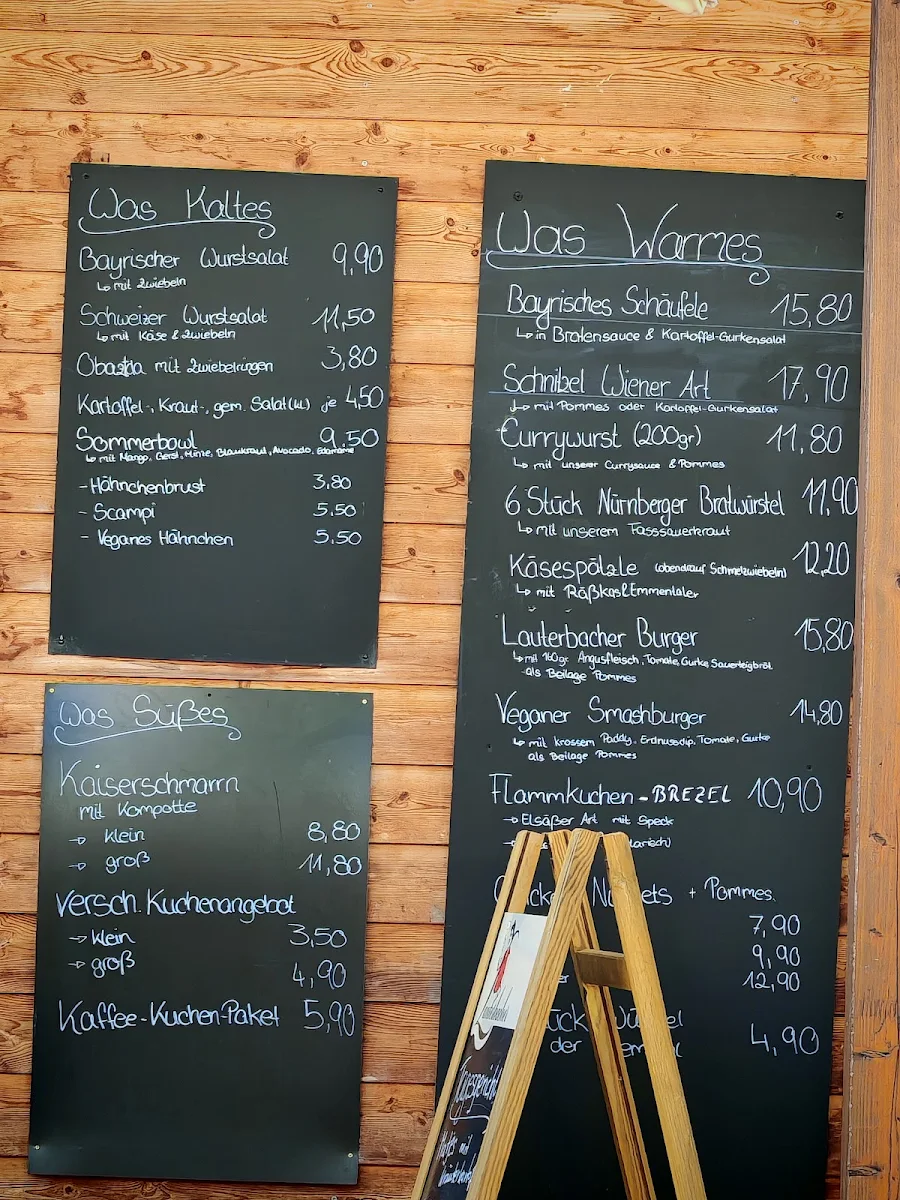 Was Kaltes
Bayrischer Wurstsalat 9,90
↳ mit Zwiebeln
Schweizer Wurstsalat 11,50
↳ mit Käse & Zwiebeln
Obazda mit Zwiebelringen 3,80
Kartoffel-, Kraut-, gem. Salat (kl.) je 4,50
Sommerbowl 9.50
↳ mit Mango, Gerst, Hirse, Blaukraut, Avocado, Edamame
- Hähnchenbrust 3,80
- Scampi 5.50
- Veganes Hähnchen 5.50
Was Süßes
Kaiserschmarrn
mit Kompotte
→ klein 8,80
→ groß 11,80
Versch. Kuchenangebot
→ klein 3,50
→ groß 4,90
Kaffee-Kuchen-Paket 5,90
Was Warmes
Bayrisches Schäufele 15,80
↳ in Bratensauce & Kartoffel-Gurkensalat
Schnitzel Wiener Art 17,90
↳ mit Pommes oder Kartoffel-Gurkensalat
Currywurst (200gr) 11,80
↳ mit unserer Currysauce & Pommes
6 Stück Nürnberger Bratwürstel 11,90
↳ mit unserem Fasssauerkraut
Käsespätzle (obendrauf Schmelzwiebeln) 12,20
↳ mit Räßkas & Emmentaler
Lauterbacher Burger 15,80
↳ mit 160gr. Angusfleisch, Tomate, Gurke, Sauerteigbröt.
als Beilage Pommes
Veganer Smashburger 14,80
↳ mit krossem Paddy, Erdnussdip, Tomate, Gurke
als Beilage Pommes
Flammkuchen - BREZEL 10,90
→ Elsäßer Art mit Speck
+ Pommes
7,90
9,90
12,90
4,90
der
Tagesgericht
mit